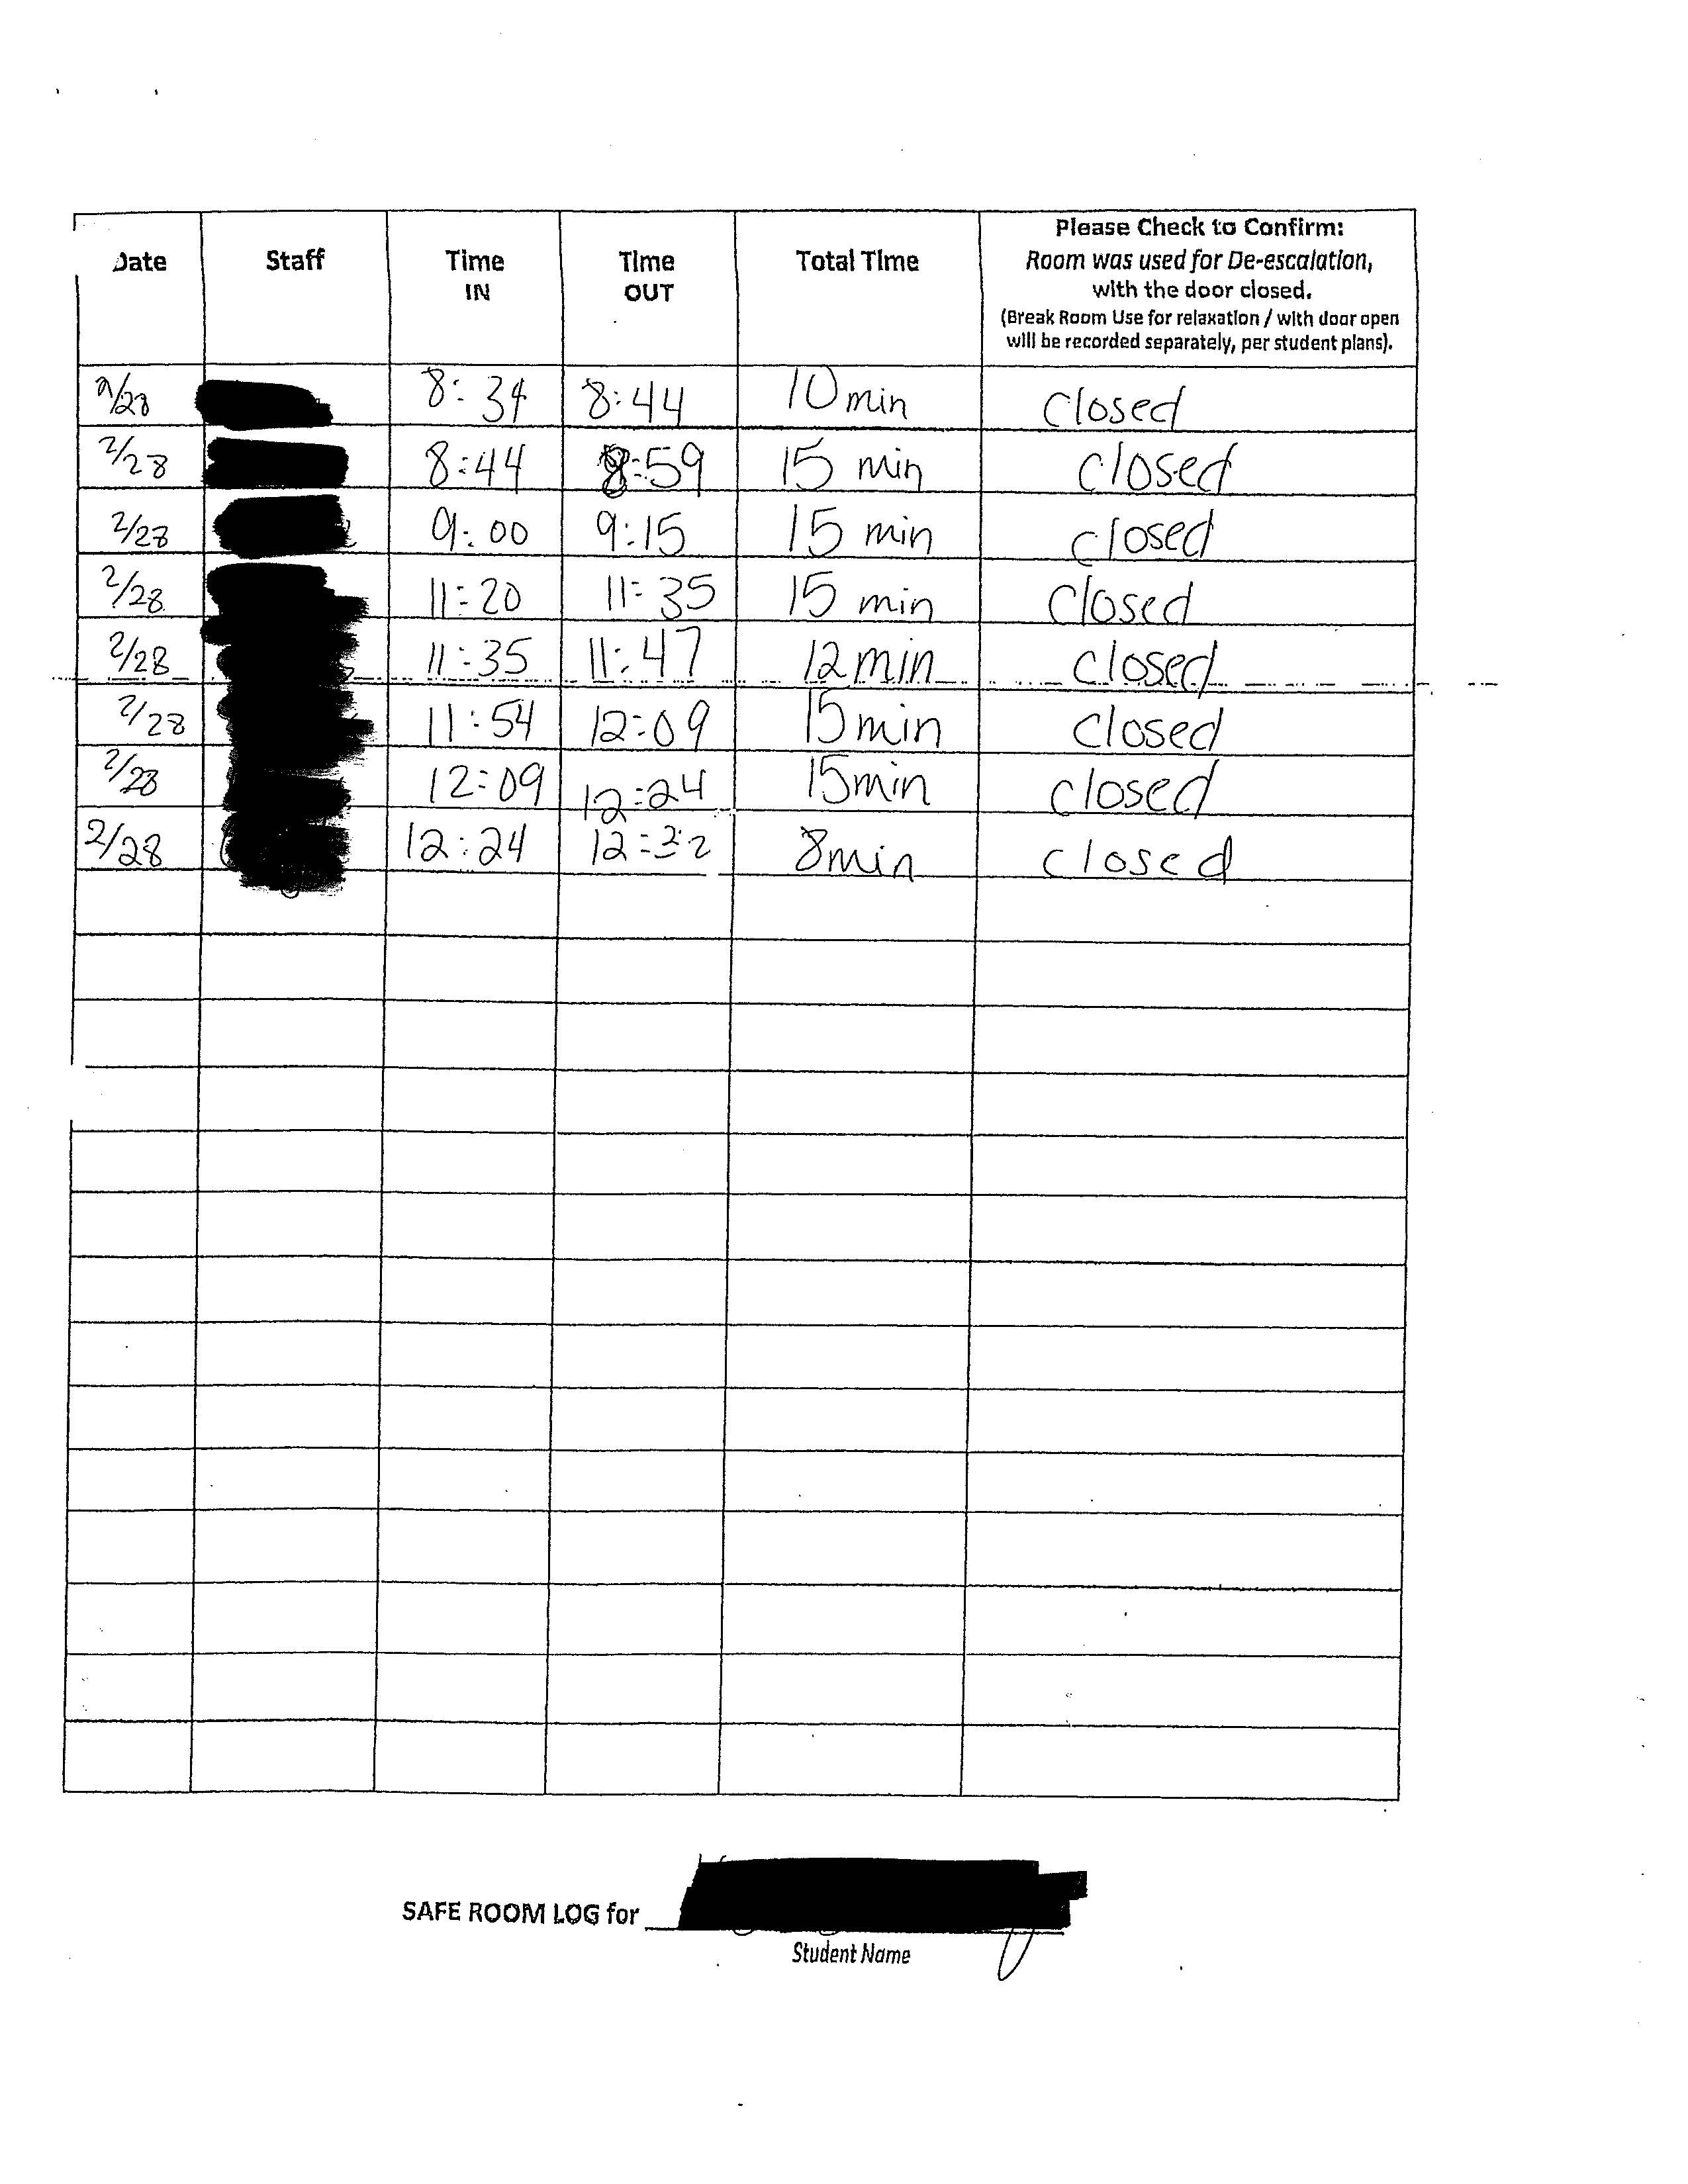 Date Staff Time IN Time OUT Total Time Please Check to Confirm:
Room was used for De-escalation,
with the door closed.
(Break Room Use for relaxation / with door open
will be recorded separately, per student plans).
2/28 8:34 8:44 10 min closed
2/28 8:44 8:59 15 min closed
2/28 9:00 9:15 15 min closed
2/28 11:20 11:35 15 min closed
2/28 11:35 11:47 12 min closed
2/28 11:54 12:09 15 min closed
2/28 12:09 12:24 15 min closed
2/28 12:24 12:32 8 min closed
SAFE ROOM LOG for
Student Name